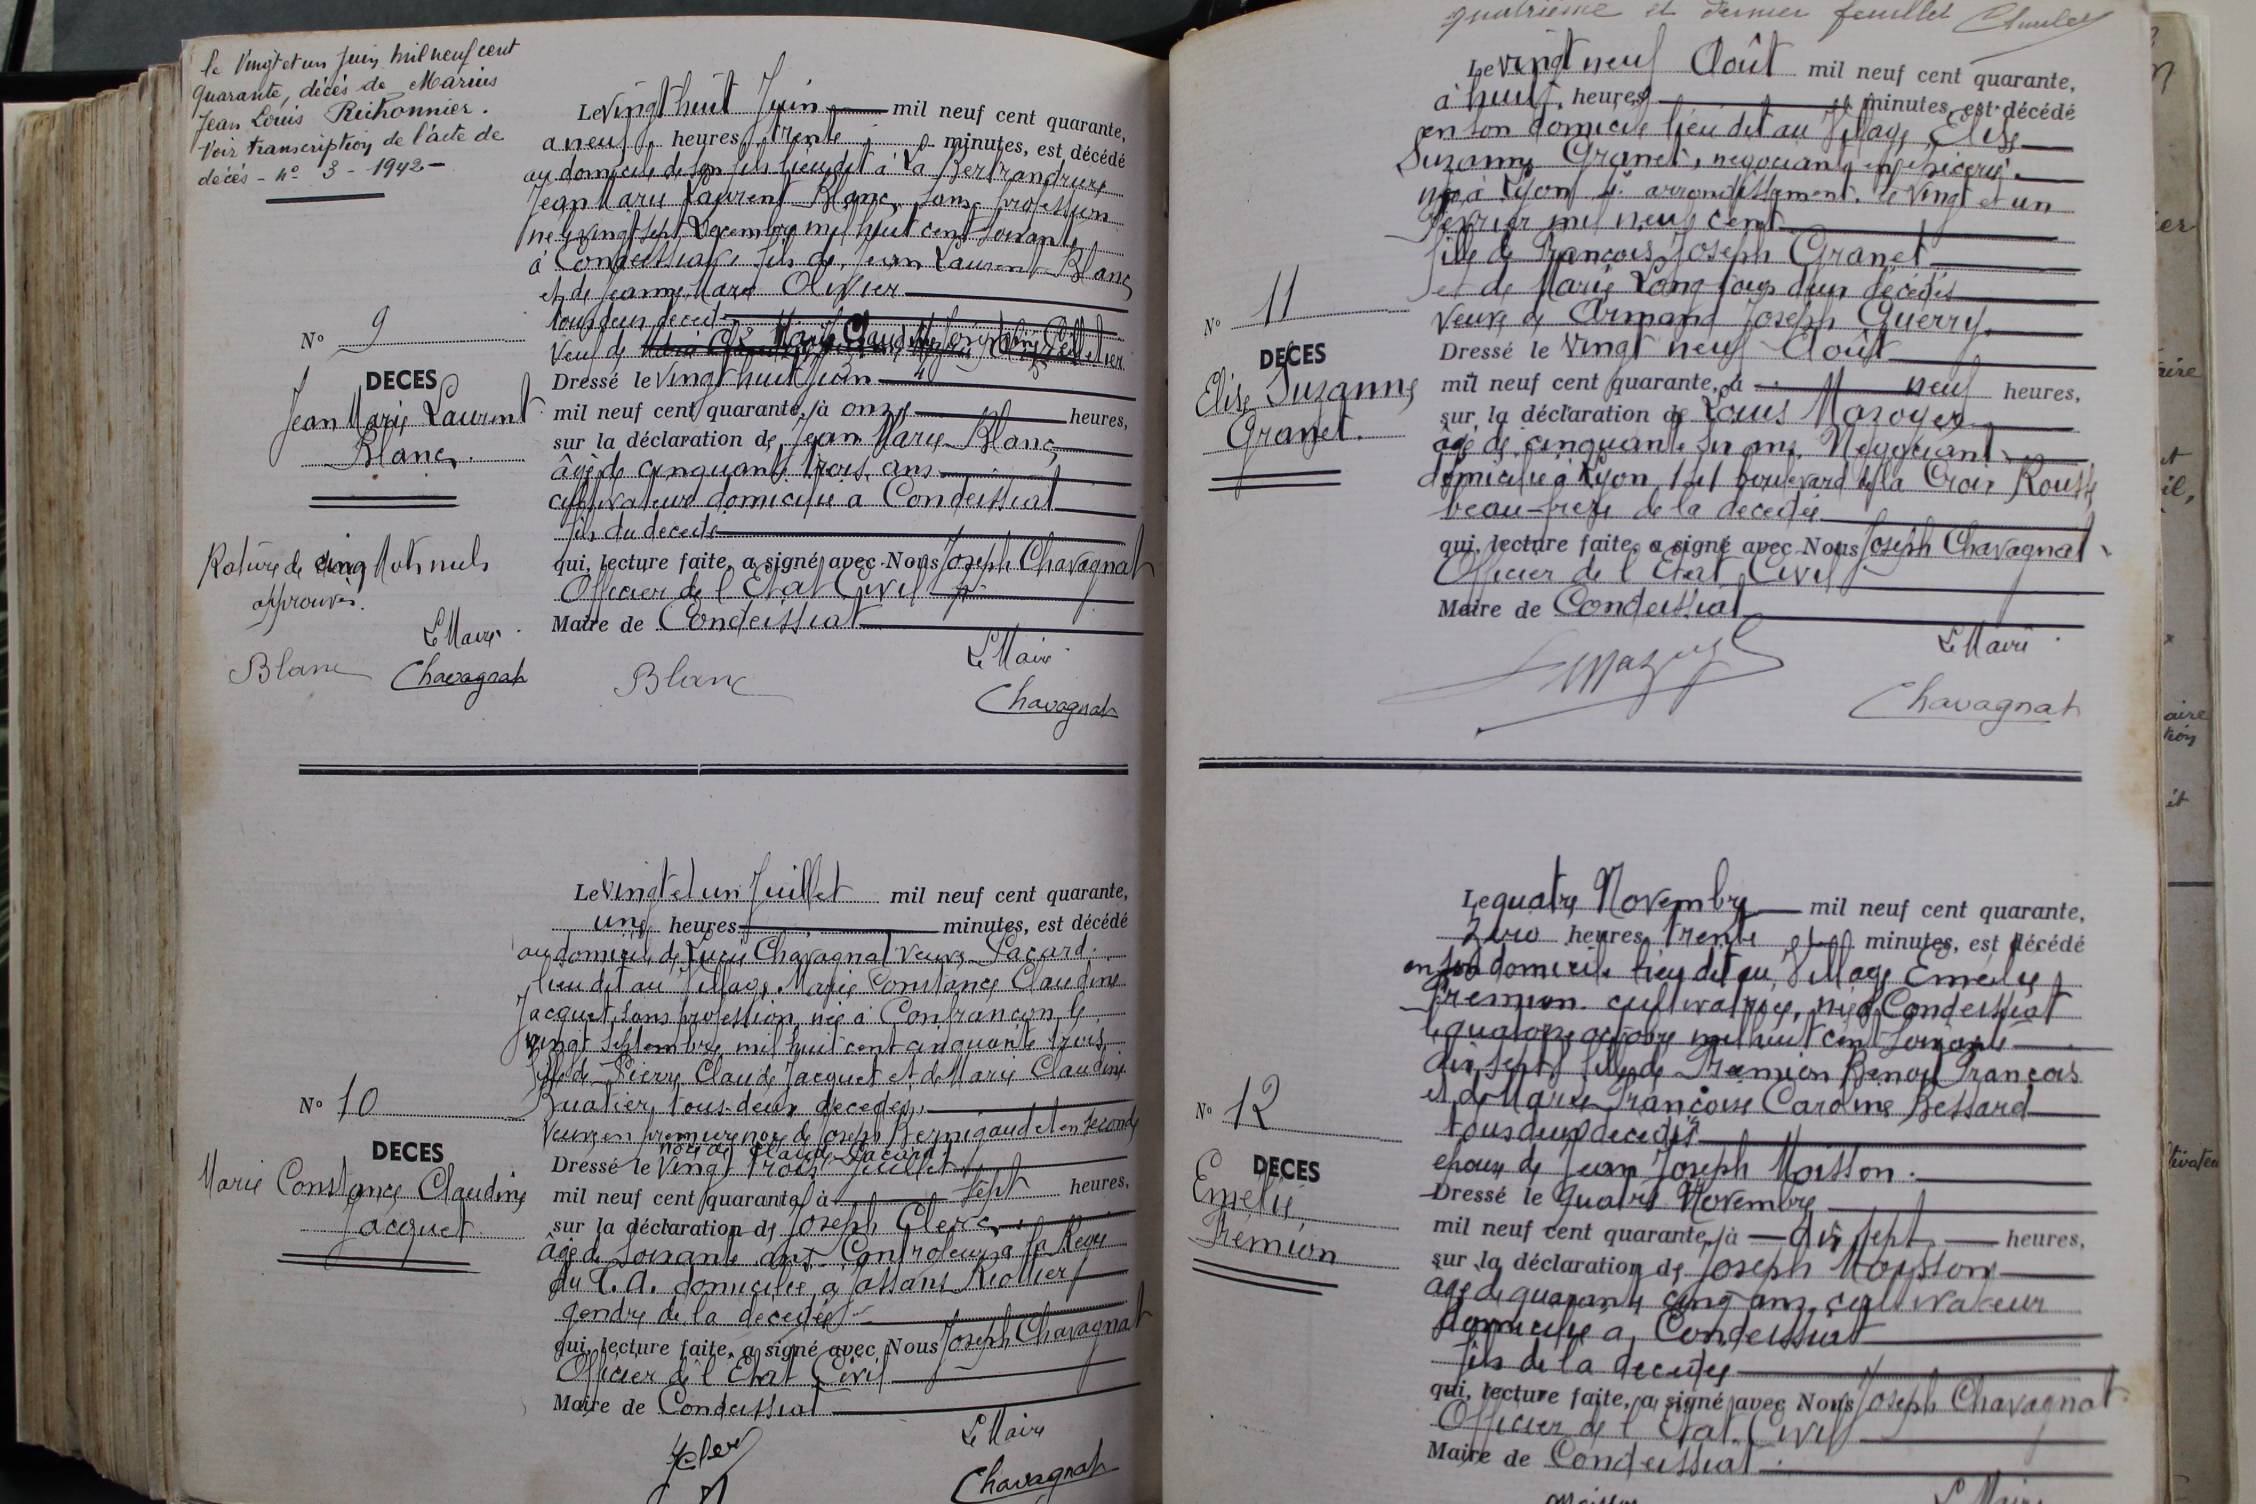 le Vingt et un Juin mil neuf cent
quarante, décès de Marius
Jean Louis Richonnier.
Voir transcription de l'acte de
décès - n° 3 - 1942 -
Le vingt huit Juin mil neuf cent quarante,
a neuf heures trente minutes, est décédé
au domicile de son fils lieu dit à La Bertrandière
Jean Marie Laurent Blanc, sans profession
né le vingt sept Décembre mil huit cent soixante
à Condeissiat fils de Jean Laurent Blanc
et de Jeanne Marie Olivier
tous deux décédés
Veuf de Marie Claudine Joséphine
Dressé le vingt huit Juin
mil neuf cent quarante, à onze heures,
sur la déclaration de Jean Marie Blanc
âgé de cinquante trois ans
cultivateur domicilié à Condeissiat
fils du décédé
qui, lecture faite, a signé avec Nous Joseph Chavagnat
Officier de l'Etat Civil
Maire de Condeissiat
N° 9
DECES
Jean Marie Laurent
Blanc.
Rature de cinq mots nuls
approuvés.
Le Maire
Blanc Chavagnat
Blanc
Le Maire
Chavagnat
Le vingt et un Juillet mil neuf cent quarante,
une heures minutes, est décédé
au domicile de Lucie Chavagnat veuve Pacard
lieu dit au Village, Marie Constance Claudine
Jacquet, sans profession, née à Confrançon le
vingt Septembre mil huit cent cinquante trois
fille de Pierre Claude Jacquet et de Marie Claudine
Buatier, tous deux décédés,
Veuve en première noce de Joseph Bernigaud et en seconde
noce de Claude Pacard
Dressé le vingt trois Juillet
mil neuf cent quarante, à sept heures,
sur la déclaration de Joseph Clerc
âgé de soixante ans Controleur à la Régie
du T.A. domicilié à Jassans Riottier
gendre de la décédée
qui, lecture faite, a signé avec Nous Joseph Chavagnat
Officier de l'Etat Civil
Maire de Condeissiat
N° 10
DECES
Marie Constance Claudine
Jacquet
Le Maire
Chavagnat
quatrième et dernier feuillet
Le vingt neuf Août mil neuf cent quarante,
à huit heures minutes, est décédé
en son domicile lieu dit au Village, Elise
Suzanne Granet, negociante en epicerie
née à Lyon 4e arrondissement, le vingt et un
Février mil neuf cent
fille de François Joseph Granet
et de Marie Long tous deux décédés
Veuve de Armand Joseph Querry
Dressé le vingt neuf Août
mil neuf cent quarante, à neuf heures,
sur la déclaration de Louis Mazoyer
âgé de cinquante six ans Négociant
domicilié à Lyon 141 boulevard de la Croix Rousse
beau-frère de la décédée
qui, lecture faite, a signé avec Nous Joseph Chavagnat
Officier de l'Etat Civil
Maire de Condeissiat
N° 11
DECES
Elise Suzanne
Granet.
Le Maire
Chavagnat
Le quatre Novembre mil neuf cent quarante,
zéro heures trente minutes, est décédé
en son domicile lieu dit au Village Emelie
Fremion cultivatrice, née à Condeissiat
le quatorze octobre mil huit cent soixante
dix sept fille de Fremion Benoit François
et de Marie Françoise Caroline Bessard
tous deux décédés
epoux de Jean Joseph Moisson.
Dressé le quatre Novembre
mil neuf cent quarante, à dix sept heures,
sur la déclaration de Joseph Moisson
âgé de quarante cinq ans, cultivateur
domicilié à Condeissiat
fils de la décédée
qui, lecture faite, a signé avec Nous Joseph Chavagnat
Officier de l'Etat Civil
Maire de Condeissiat
N° 12
DECES
Emelie
Fremion
Le Maire